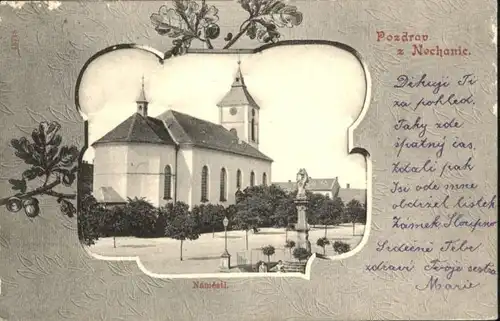 Pozdrav
z Nechanic.
Děkuji Ti
za pohled.
Taky zde
špatný čas.
Zdali pak
Jsi ode mne
obdržel lístek
Zámek Hrad
Srdečně Tebe
zdraví Tvoje sestra
Marie
Náměstí.